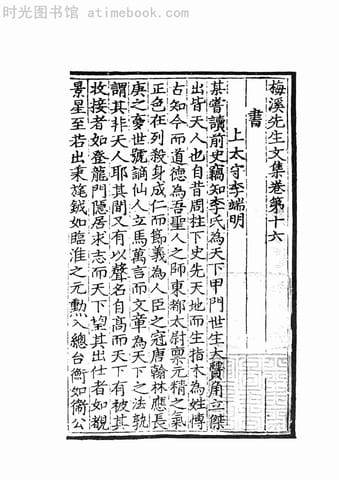 时光图书馆 - atimebook.com
梅溪先生文集卷第十六
書
上太守李端明
某嘗讀前史竊知李氏為天下甲門世生大賢角立傑
出皆天人也自昔周柱下史先天地而生指木為姓博
古知今而道德為吾聖人之師東都太尉稟元精之氣
正色在列殺身成仁而節義為人臣之冠唐翰林應長
庚之夢世號謫仙人立馬萬言而文章為天下之法孰
謂其非天人耶其間又有以聲名自高而天下有被其
容接者如登龍門隱居求志而天下望其出仕者如覩
景星至若出乘旄鉞如臨淮之元勲入總台衡如衞公